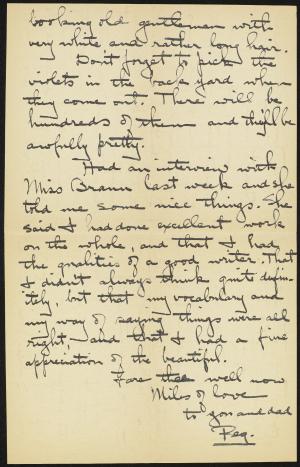 looking old gentleman with
very white and rather long hair.
Don't forget to pick the
violets in the back yard when
they come out. There will be
hundreds of them and they'll be
awfully pretty.
Had an interview with
Miss Braun last week and she
told me some nice things. She
said I had done excellent work
on the whole, and that I had
the qualities of a good writer. That
I didn't always think quite defin-
itely, but that my vocabulary and
my way of saying things were all
right, and that I had a fine
appreciation of the beautiful.
Fare thee well now
Miles of love
to you and dad
Peg.